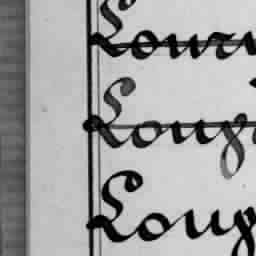 Lour
Loug
Loug